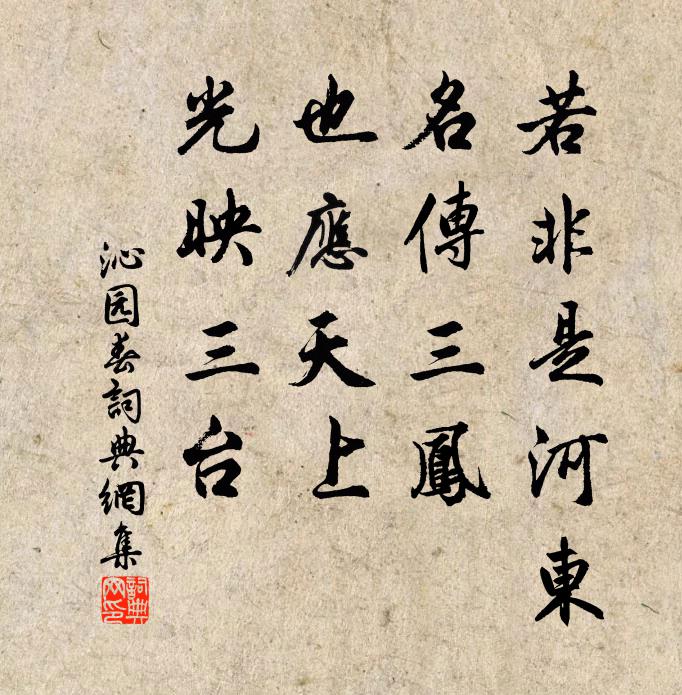 若非是河東
名傳三鳳
也應天上
光映三台
沁园春詞典網集
詞典
网印